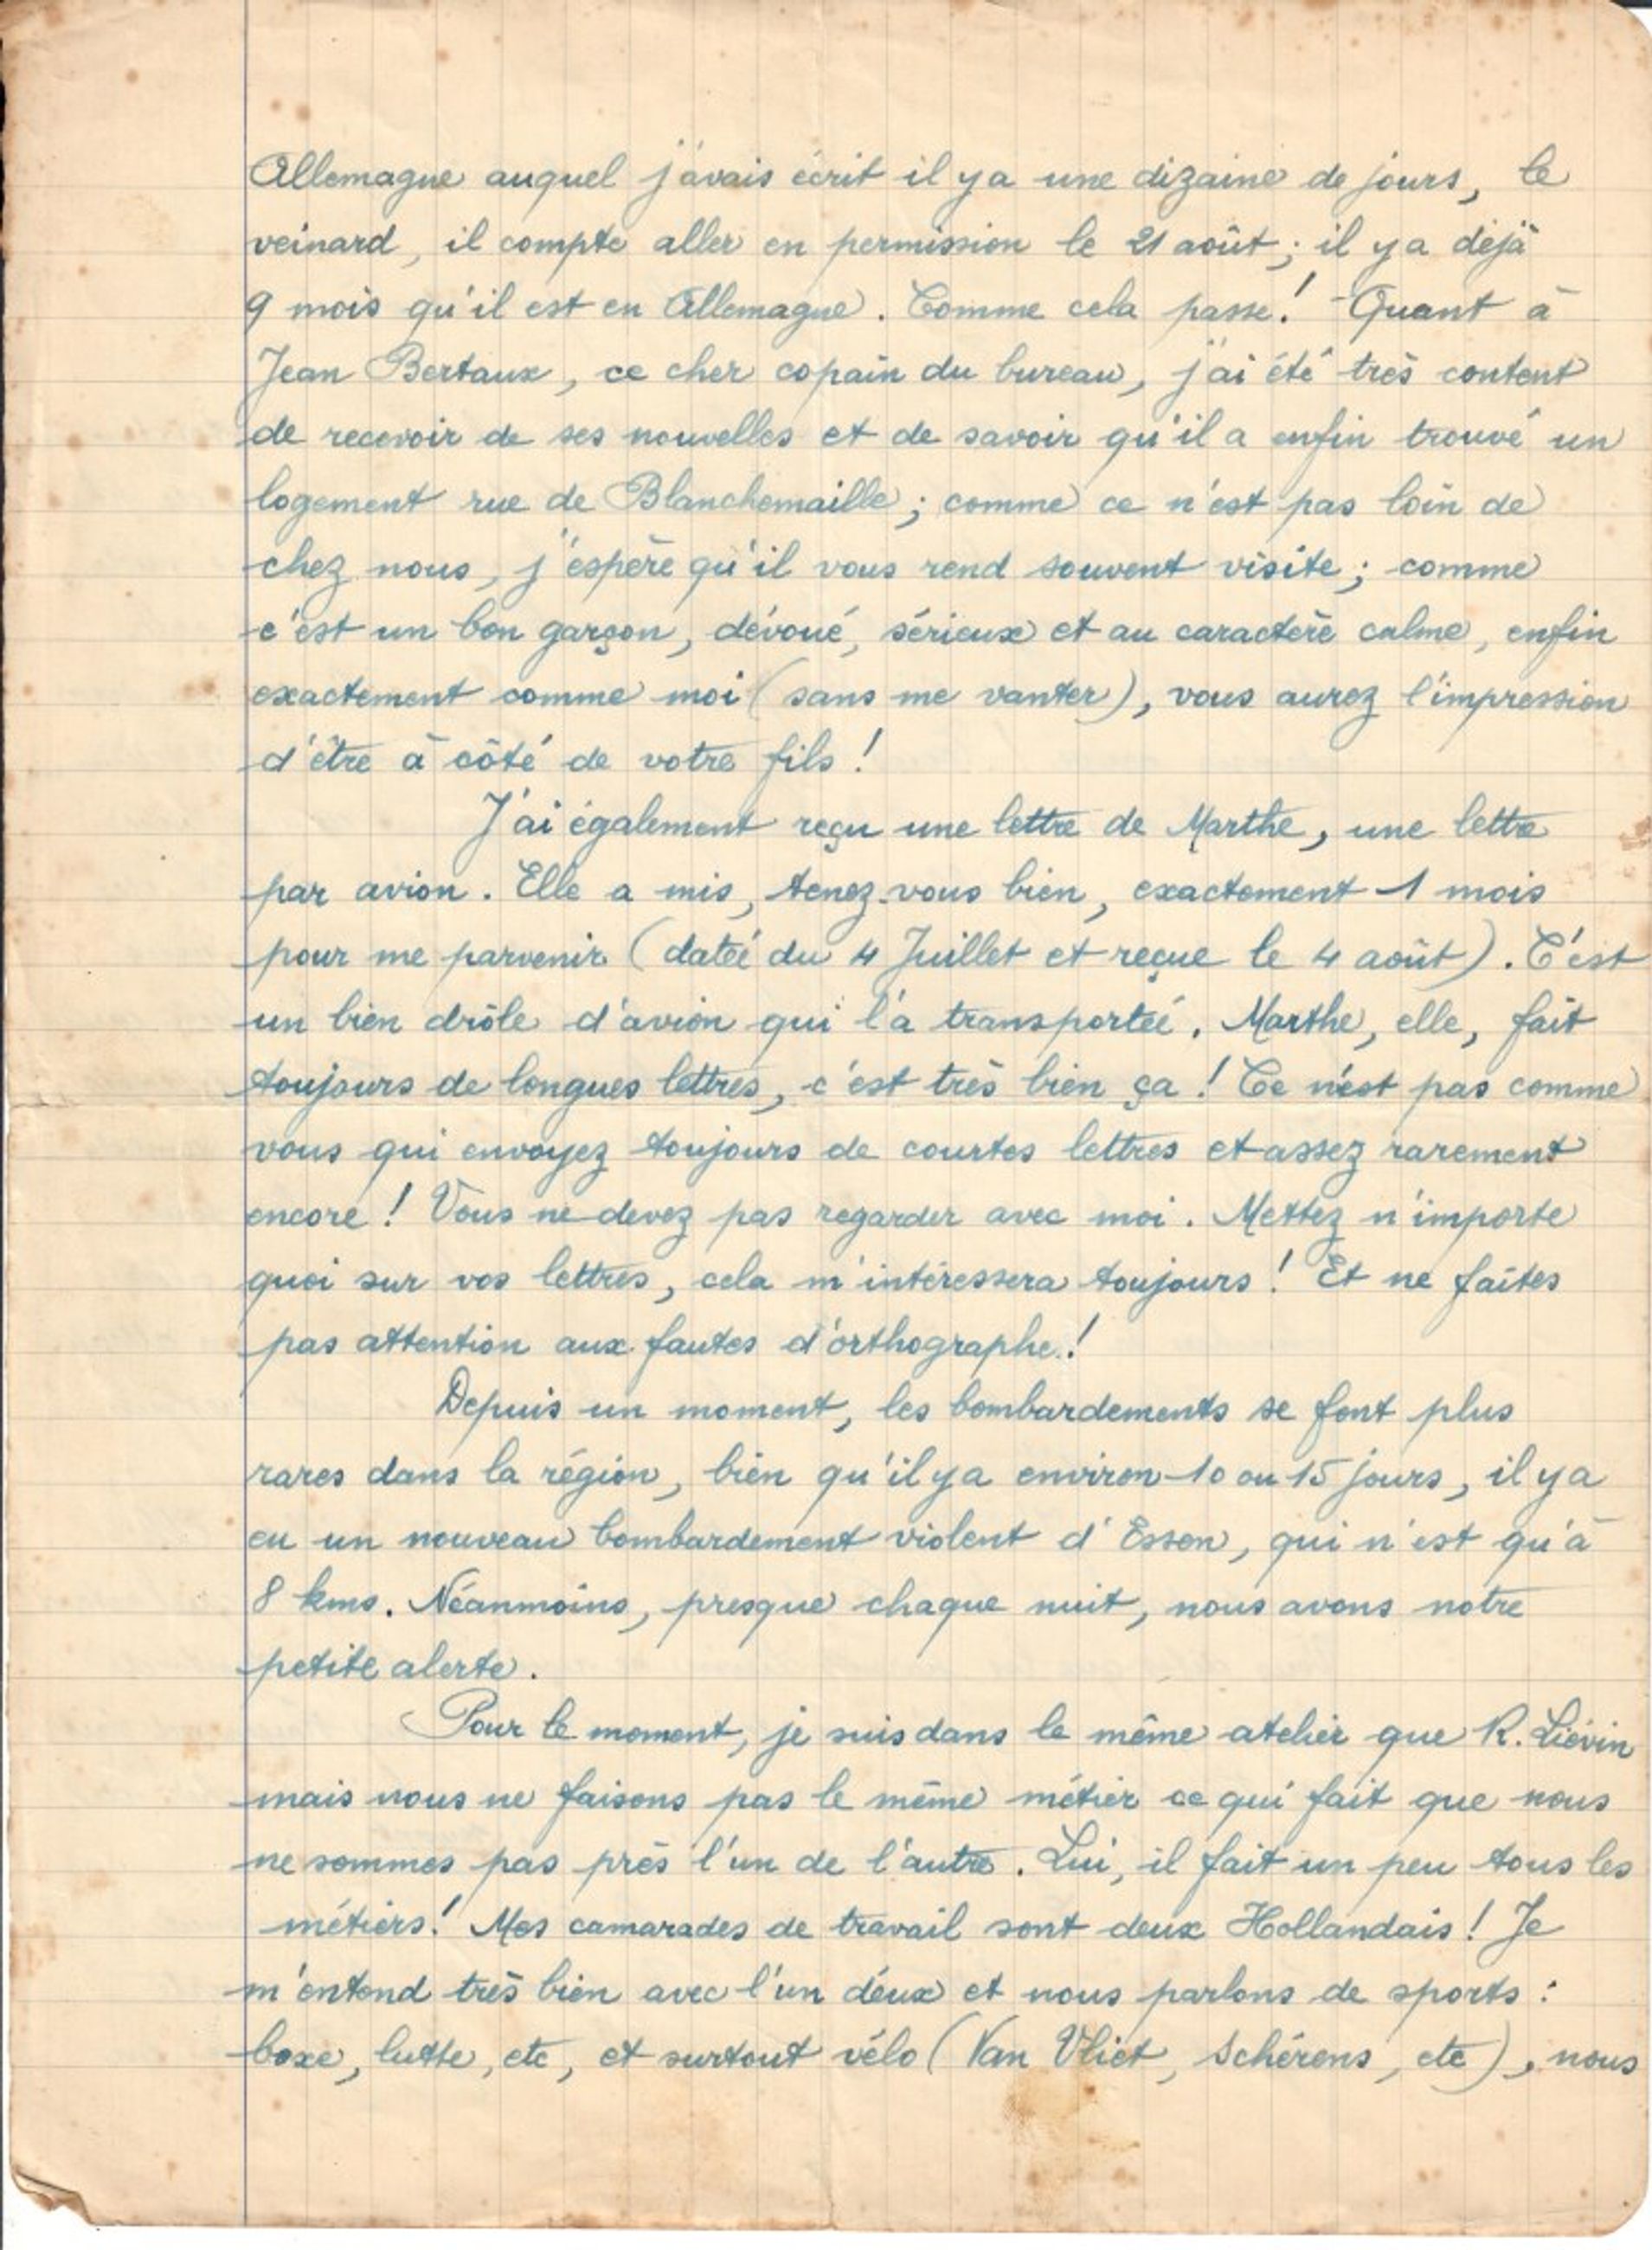 Allemagne auquel j'avais écrit il y a une dizaine de jours, le
veinard, il compte aller en permission le 21 août ; il y a déjà
9 mois qu'il est en Allemagne. Comme cela passe ! Quant à
Jean Bertaux, ce cher copain du bureau, j'ai été très content
de recevoir de ses nouvelles et de savoir qu'il a enfin trouvé un
logement rue de Blanchemaille ; comme ce n'est pas loin de
chez nous, j'espère qu'il vous rend souvent visite ; comme
c'est un bon garçon, dévoué, sérieux et au caractère calme, enfin
exactement comme moi (sans me vanter), vous aurez l'impression
d'être à côté de votre fils !
J'ai également reçu une lettre de Marthe, une lettre
par avion. Elle a mis, tenez-vous bien, exactement 1 mois
pour me parvenir (datée du 4 Juillet et reçue le 4 août). C'est
un bien drôle d'avion qui l'a transportée. Marthe, elle, fait
toujours de longues lettres, c'est très bien ça ! Ce n'est pas comme
vous qui envoyez toujours de courtes lettres et assez rarement
encore ! Vous ne devez pas regarder avec moi. Mettez n'importe
quoi sur vos lettres, cela m'intéressera toujours ! Et ne faites
pas attention aux fautes d'orthographe !
Depuis un moment, les bombardements se font plus
rares dans la région, bien qu'il y a environ 10 ou 15 jours, il y a
eu un nouveau bombardement violent d'Essen, qui n'est qu'à
8 kms. Néanmoins, presque chaque nuit, nous avons notre
petite alerte.
Pour le moment, je suis dans le même atelier que R. Liévin
mais nous ne faisons pas le même métier ce qui fait que nous
ne sommes pas près l'un de l'autre. Lui, il fait un peu tous les
métiers ! Mes camarades de travail sont deux Hollandais ! Je
m'entend très bien avec l'un d'eux et nous parlons de sports :
boxe, lutte, etc, et surtout vélo (Van Vliet, Schérens, etc), nous